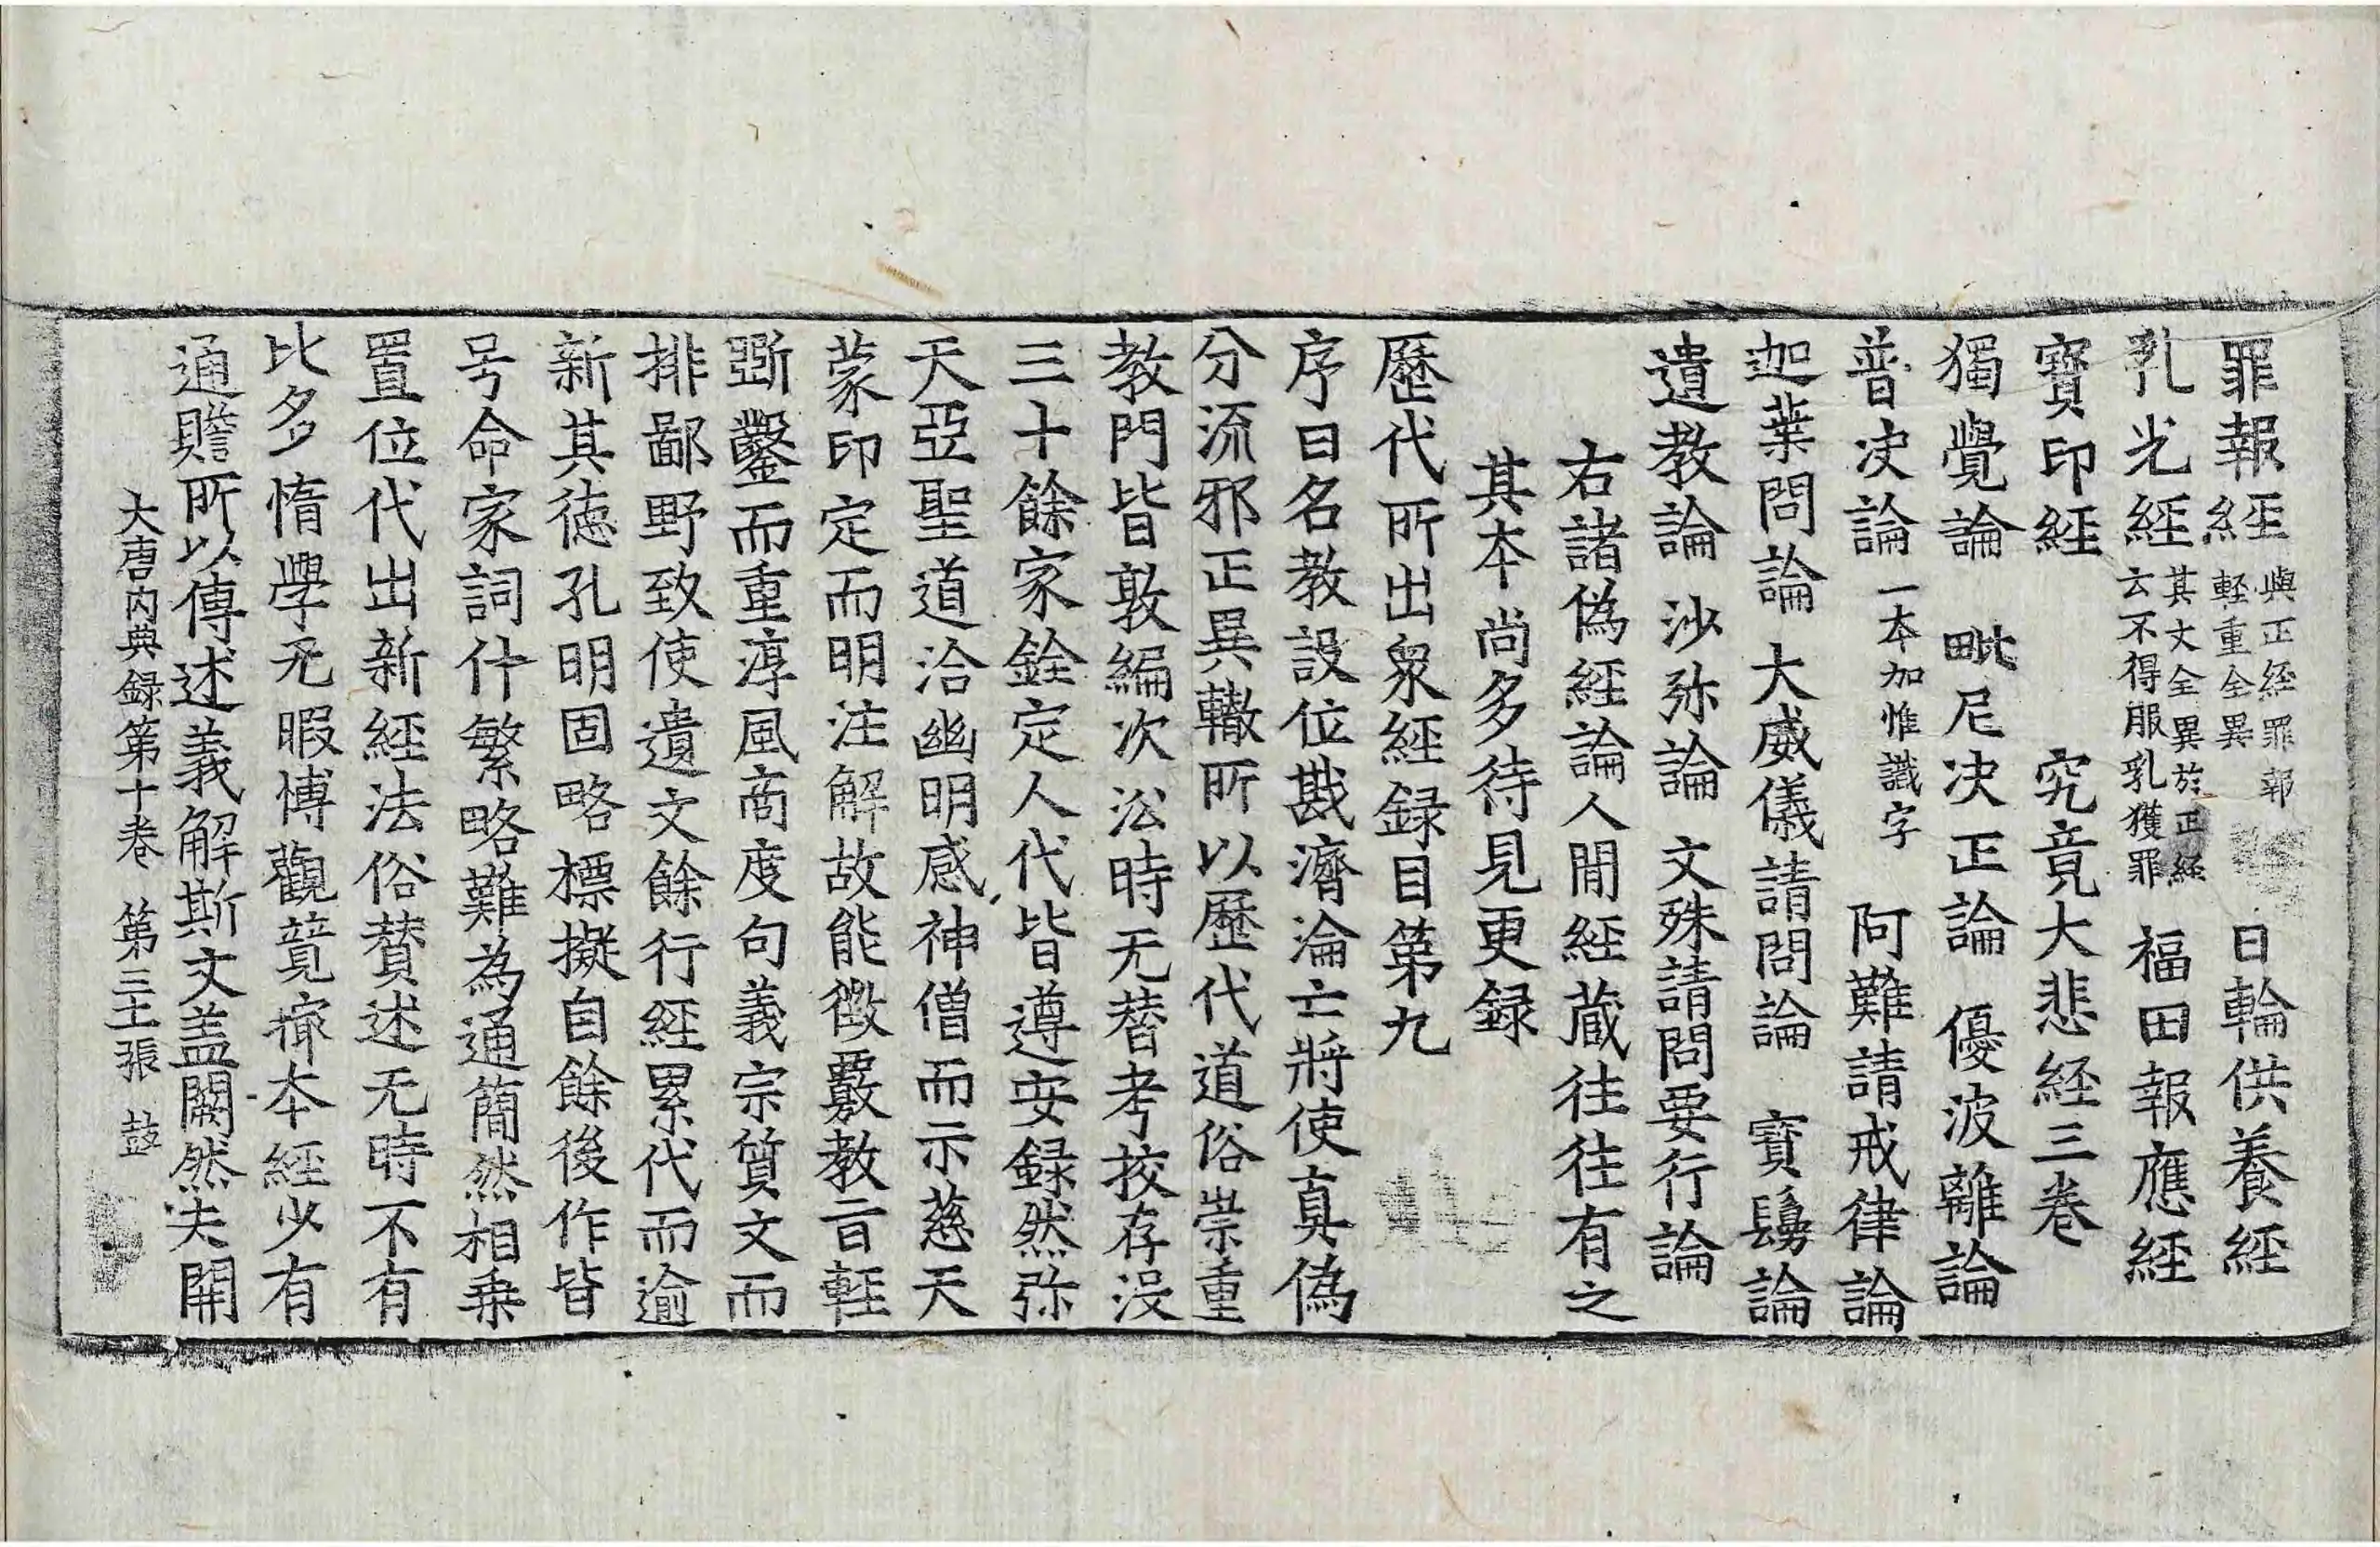 罪報經與正経罪報軽重全異日輪供養經
乳光經其文全異於正経云不得服乳獲罪福田報應經
寳印經究竟大悲経三卷
獨覺論毗尼决正論優波離論
普决論一本加惟識字阿難請戒律論
迦葉問論大威儀請問論寳鬘論
遺教論沙弥論文殊請問要行論
右諸偽経論人間経蔵往往有之
其本尚多待見更録
歷代所出衆経録目第九
序曰名教設位戡濟淪亡將使真偽
分流邪正異轍所以歷代道俗崇重
教門皆敦編次㳂時无替考挍存没
三十餘家銓定人代皆遵安録然弥
天亞聖道洽幽明感神僧而示慈天
蒙印定而明注解故能徴覈教旨輕
斲鑿而重淳風商度句義宗質文而
排鄙野致使遺文餘行経累代而逾
新其徳孔明固略標擬自餘後作皆
号命家詞什繁略難為通簡然相乗
置位代出新経法俗賛述无時不有
比多惰學无暇博觀竟撦本經少有
通贍所以傳述義解斯文盖闕然夫開
大唐内典録第十卷第三十一張鼓